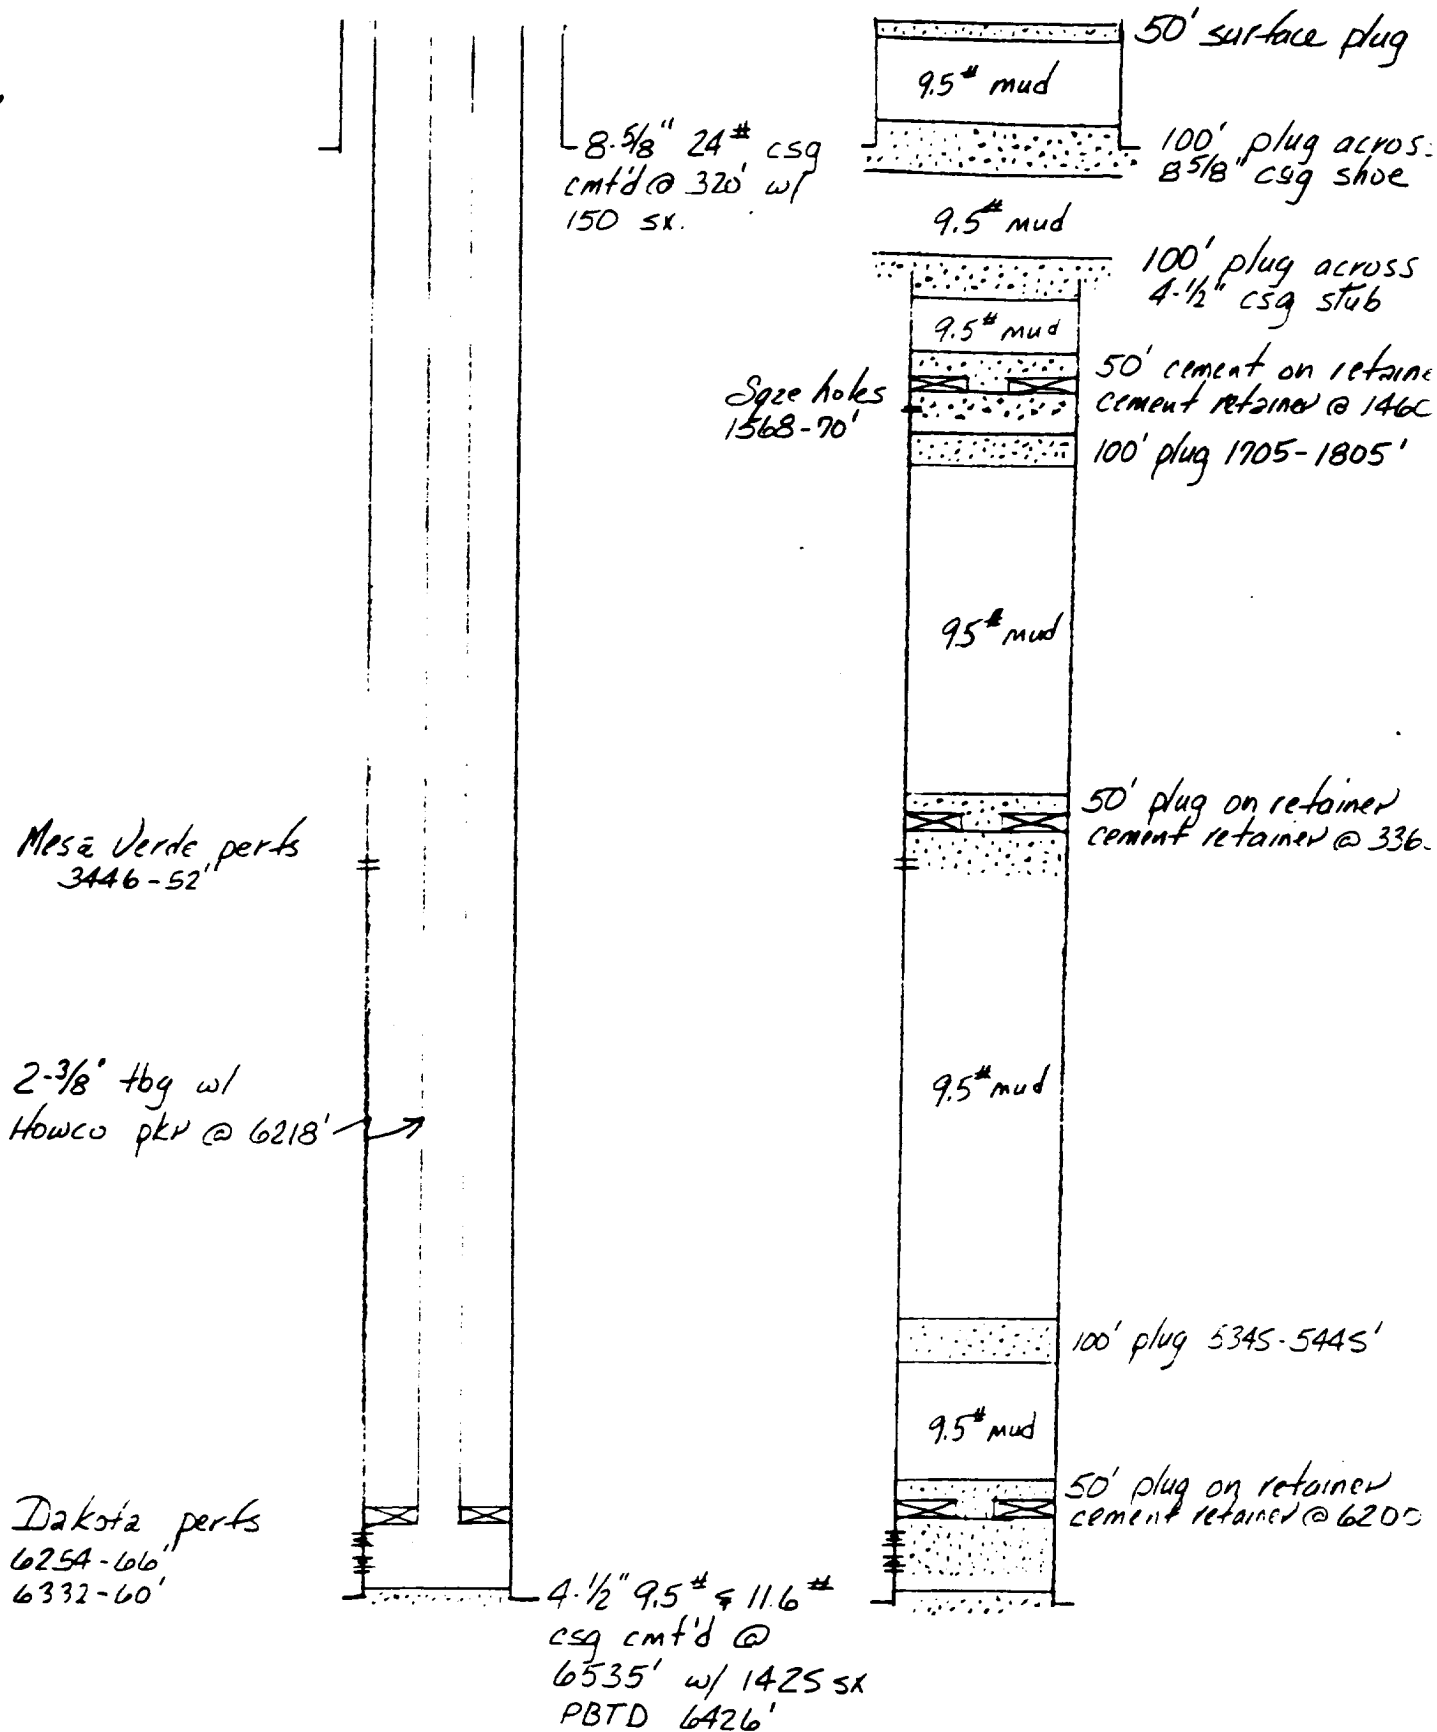 8-5/8" 24# csg
cmt'd @ 320' w/
150 sx.
Mesa Verde perfs
3446-52'
2-3/8" tbg w/
Howco pkr @ 6218'
Dakota perfs
6254-66'
6332-60'
4-1/2" 9.5# & 11.6#
csg cmt'd @
6535' w/ 1425 sx
PBTD 6426'
50' surface plug
9.5# mud
100' plug across
8 5/8" csg shoe
9.5# mud
100' plug across
4-1/2" csg stub
9.5# mud
50' cement on retaine
cement retainer @ 1460
Sqze holes
1568-70'
100' plug 1705-1805'
9.5# mud
50' plug on retainer
cement retainer @ 336
9.5# mud
100' plug 5345-5445'
9.5# mud
50' plug on retainer
cement retainer @ 6200